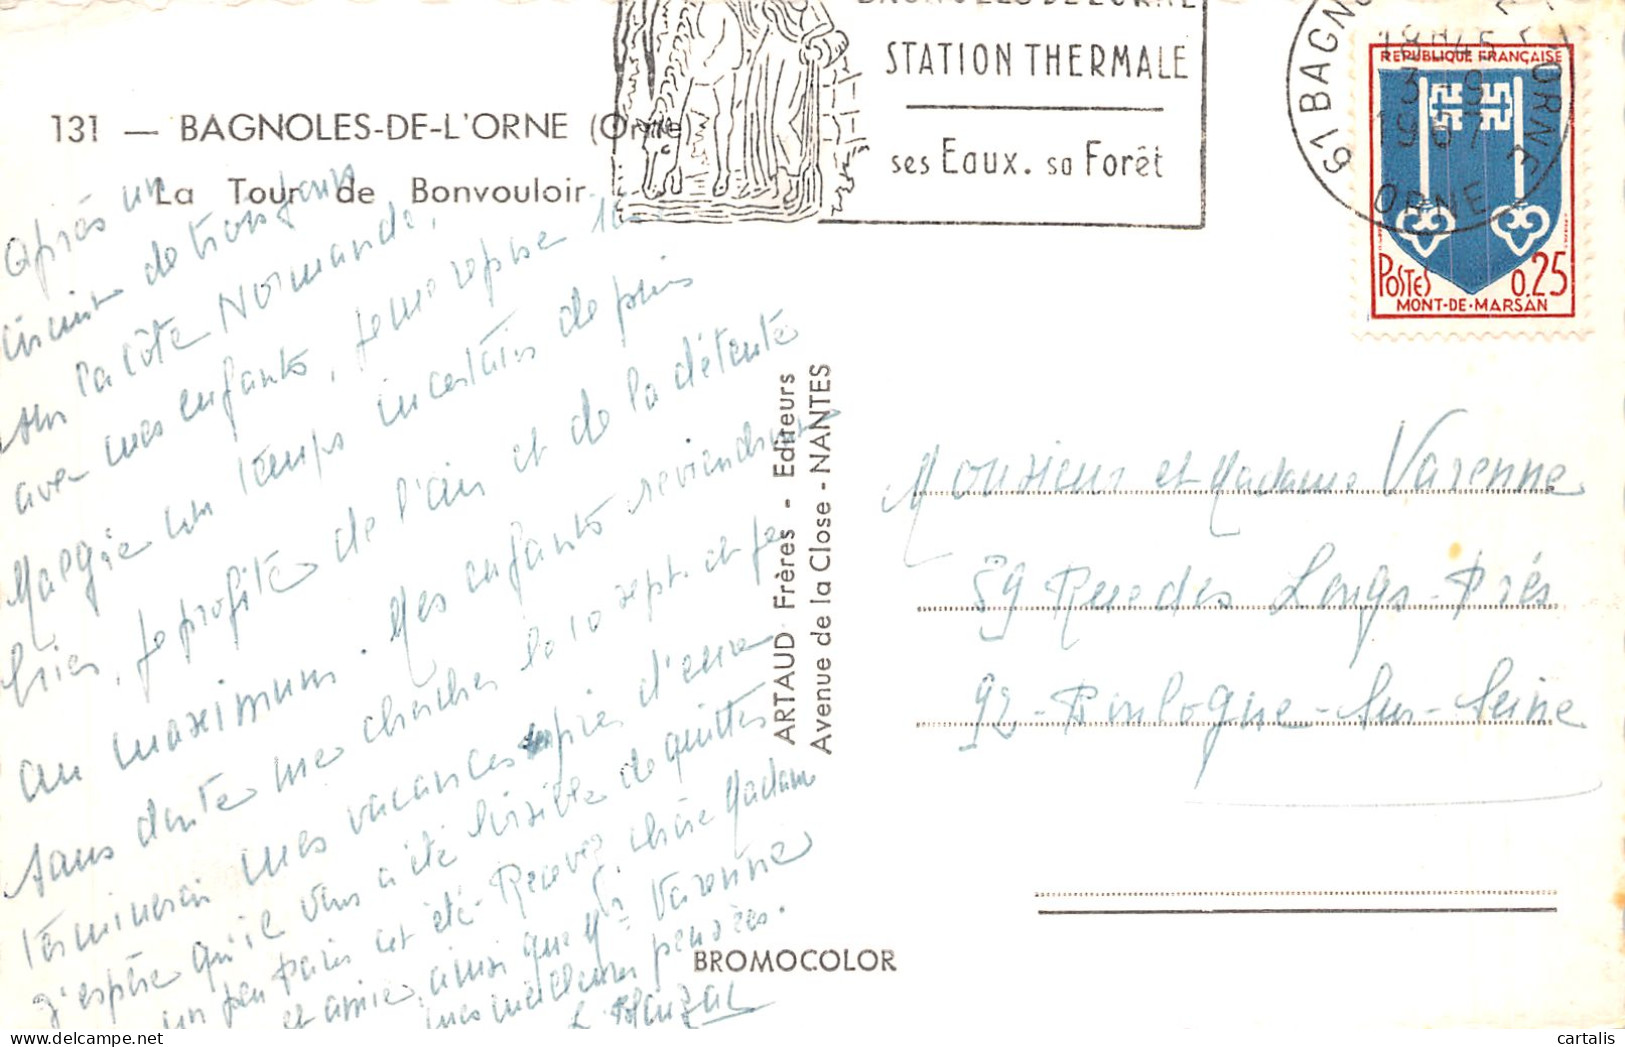 131 — BAGNOLES-DE-L'ORNE (Orne)
La Tour de Bonvouloir
BAGNOLES DE L'ORNE
STATION THERMALE
ses Eaux. sa Forêt
61 BAGNOLES DE L'ORNE
18H45
3 - 9
1967
ORNE
REPUBLIQUE FRANÇAISE
POSTES 0,25
MONT-DE-MARSAN
Après un
circuit de trois jours
sur la côte Normande,
avec mes enfants, je me repose ici
Malgré un temps incertain depuis
hier, je profite de l'air et de la détente
au maximum. Mes enfants reviendront
sans doute me chercher le 10 sept. et je
terminerai mes vacances près d'eux
J'espère qu'il vous a été loisible de quitter
un peu Paris cet été. Recevez, chère Madame
et amie, ainsi que Mr Varenne
mes meilleures pensées.
ARTAUD Frères - Editeurs
Avenue de la Close - NANTES
BROMOCOLOR
Monsieur et Madame Varenne
59 Rue des Longs-Prés
92-Boulogne-sur-Seine
cartalis